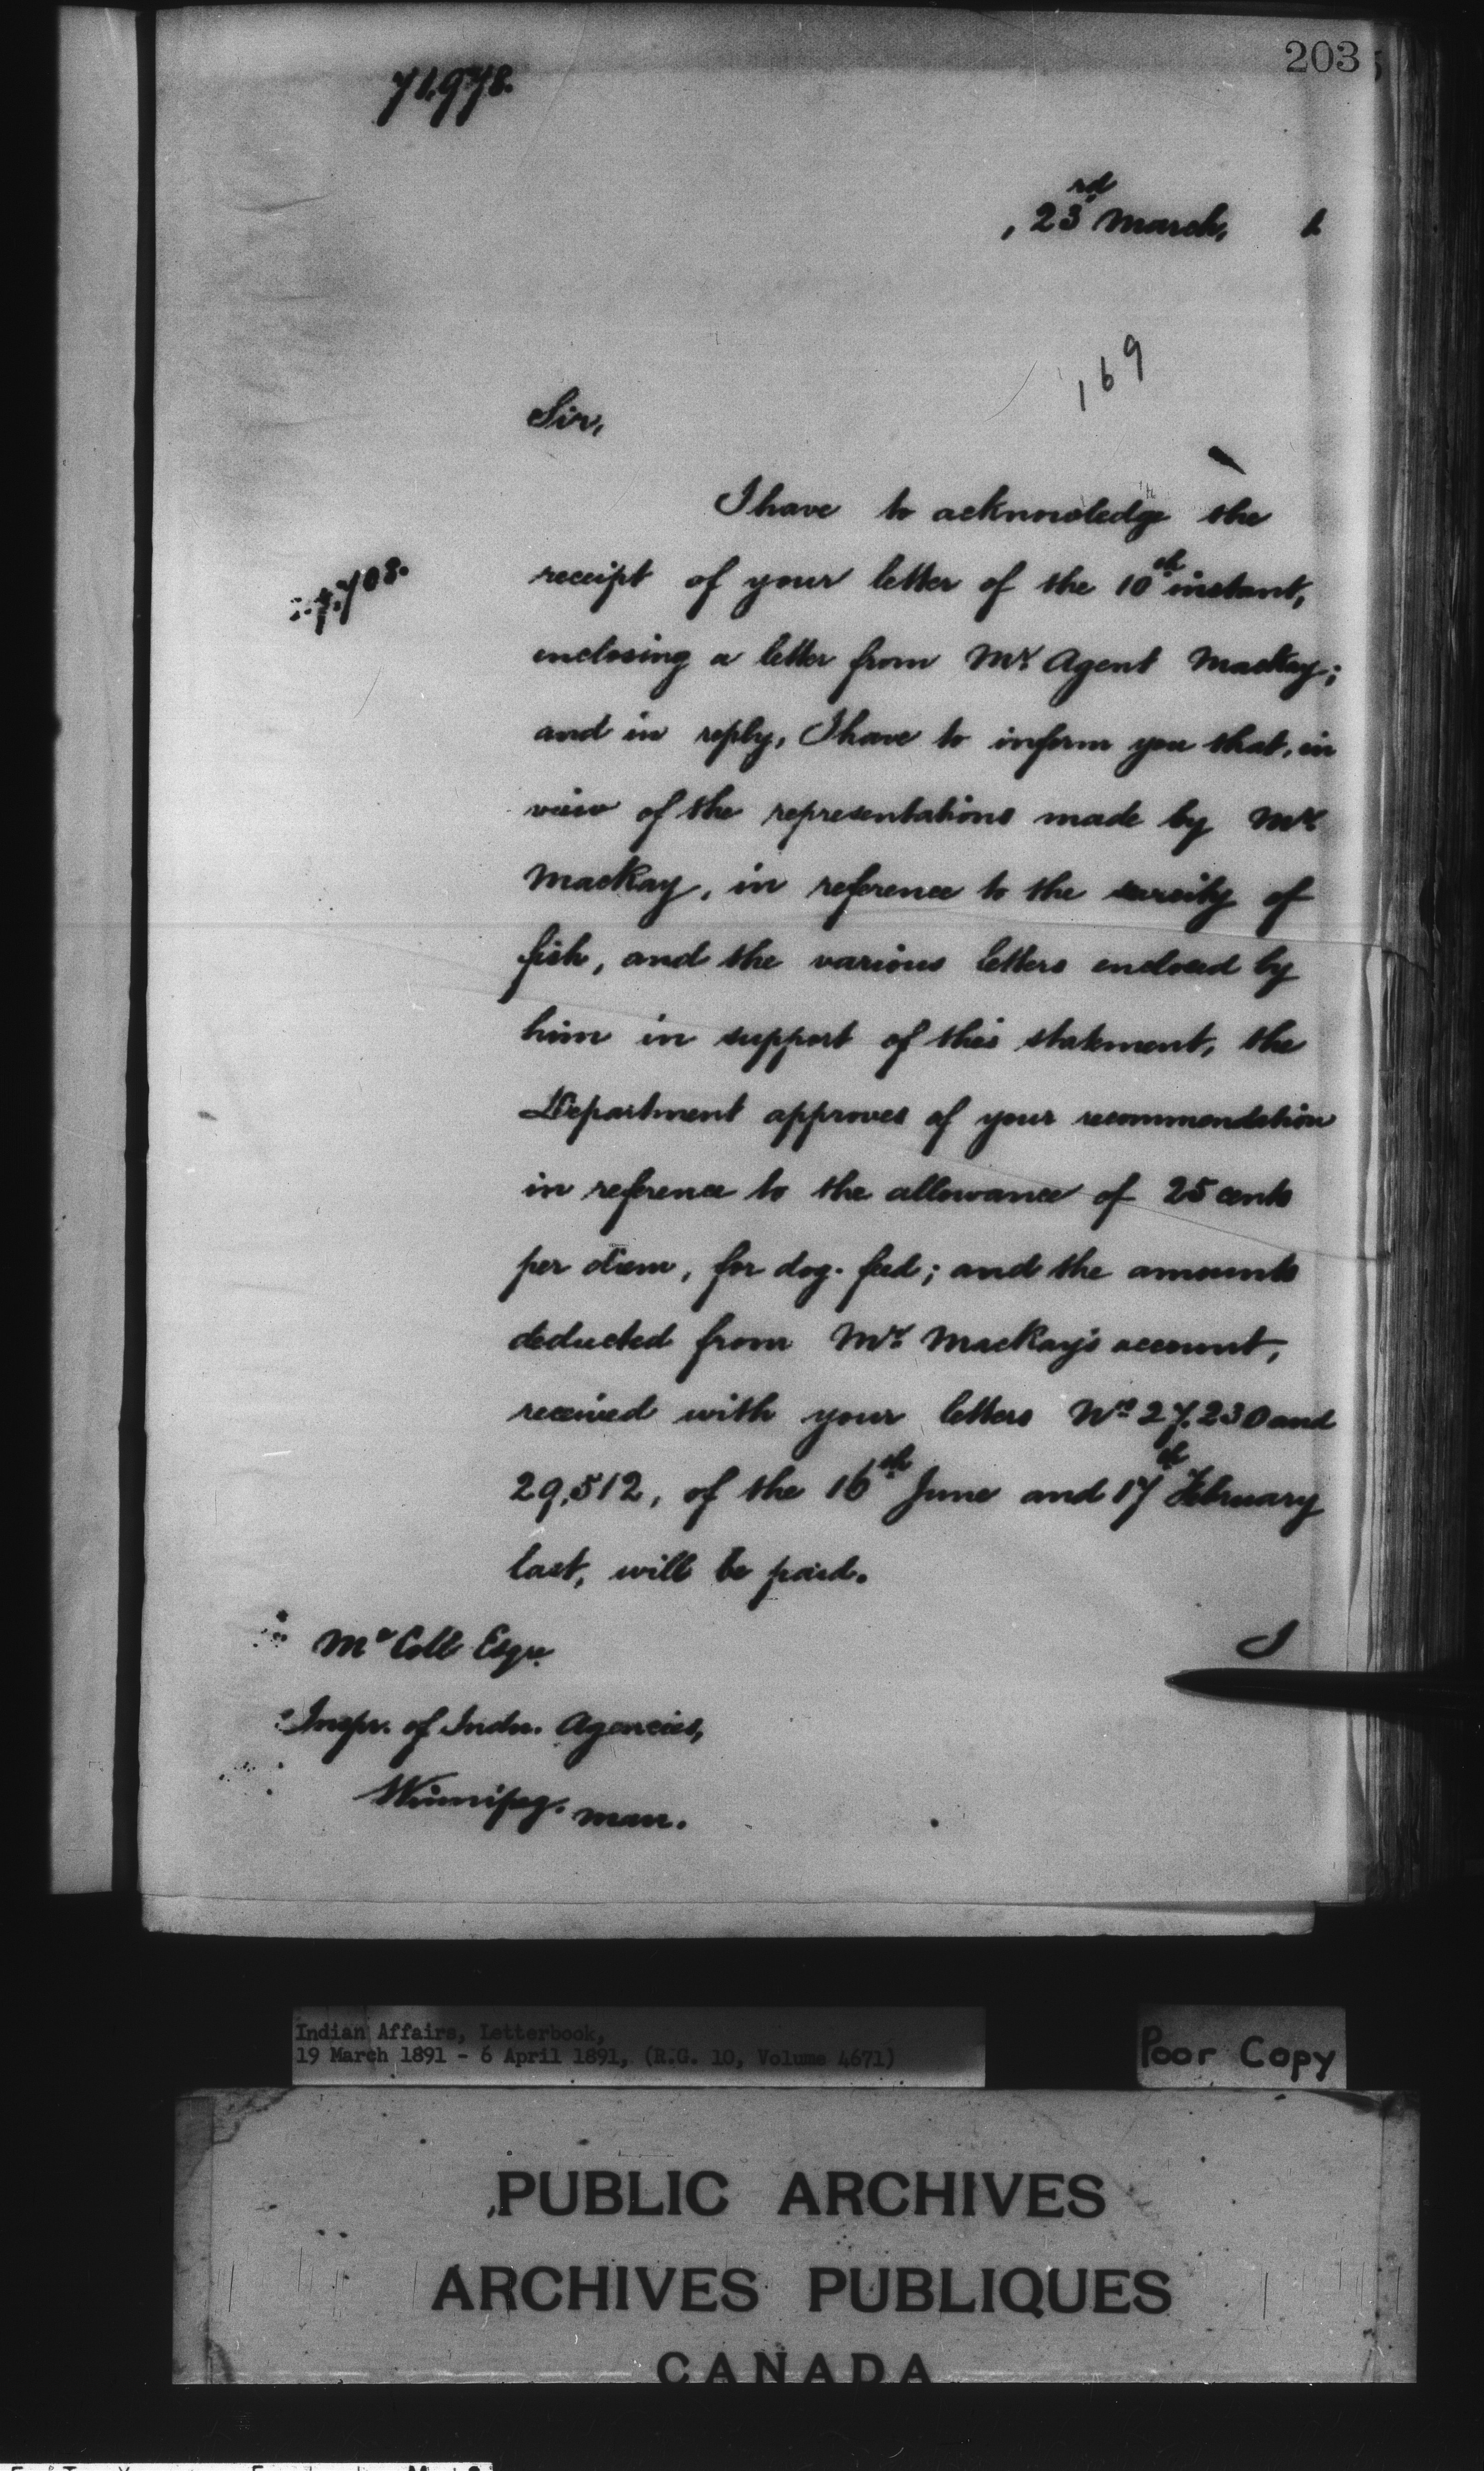 203
71,978.
, 23rd March, 1
169
Sir,
I have to acknowledge the
receipt of your letter of the 10th instant,
enclosing a letter from Mr. Agent Mackay;
and in reply, I have to inform you that, in
view of the representations made by Mr.
Mackay, in reference to the scarcity of
fish, and the various letters enclosed by
him in support of this statement, the
Department approves of your recommendation
in reference to the allowance of 25 cents
per diem, for dog-feed; and the amounts
deducted from Mr. Mackay's account,
received with your letters Nos 27,230 and
29,512, of the 16th June and 17th February
last, will be paid.
I
McColl Esqr.
Inspr. of Indn. Agencies,
Winnipeg. Man.
Indian Affairs, Letterbook,
19 March 1891 - 6 April 1891, (R.G. 10, Volume 4671)
Poor Copy
PUBLIC ARCHIVES
ARCHIVES PUBLIQUES
CANADA